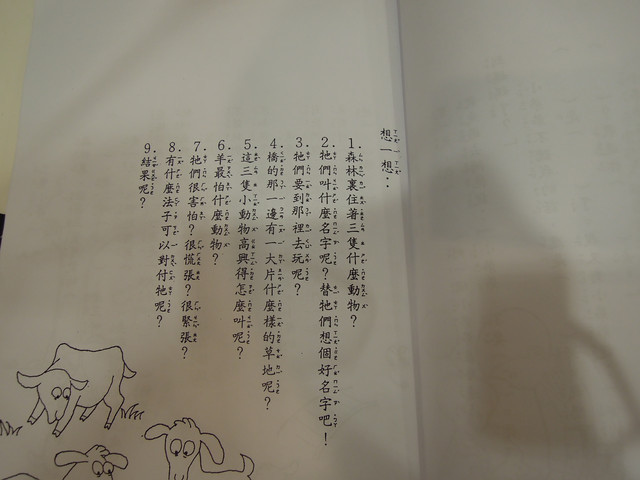 想一想：
1.森林裏住著三隻什麼動物？
2.牠們叫什麼名字呢？替牠們想個好名字吧！
3.牠們要到那裡去玩呢？
4.橋的那一邊有一大片什麼樣的草地呢？
5.這三隻小動物高興得怎麼叫呢？
6.羊最怕什麼動物？
7.牠們很害怕？很慌張？很緊張？
8.有什麼法子可以對付牠呢？
9.結果呢？